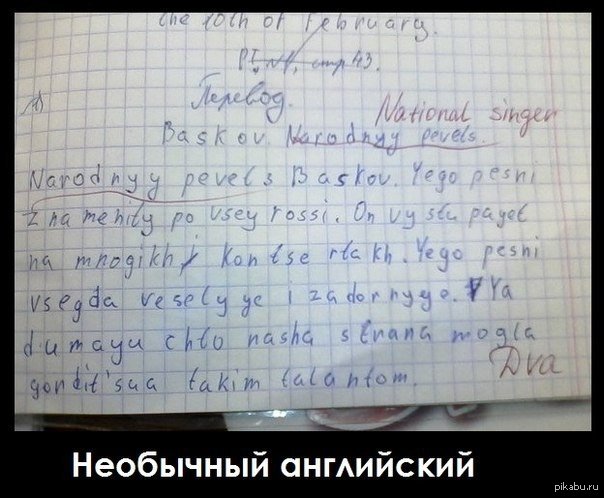 the 10th of February.
PI, №1, стр 43.
1)
Перевод.
National singer
Baskov. Narodnyy pevets.
Narodnyy pevets Baskov. Yego pesni
znamenity po vsey rossi. On vystupayet
na mnogikh kontsertakh. Yego pesni
vsegda veselyye i zadornyye. Ya
dumayu chto nasha strana mogla
gordit'sua takim talantom.
Dva
Необычный английский
pikabu.ru